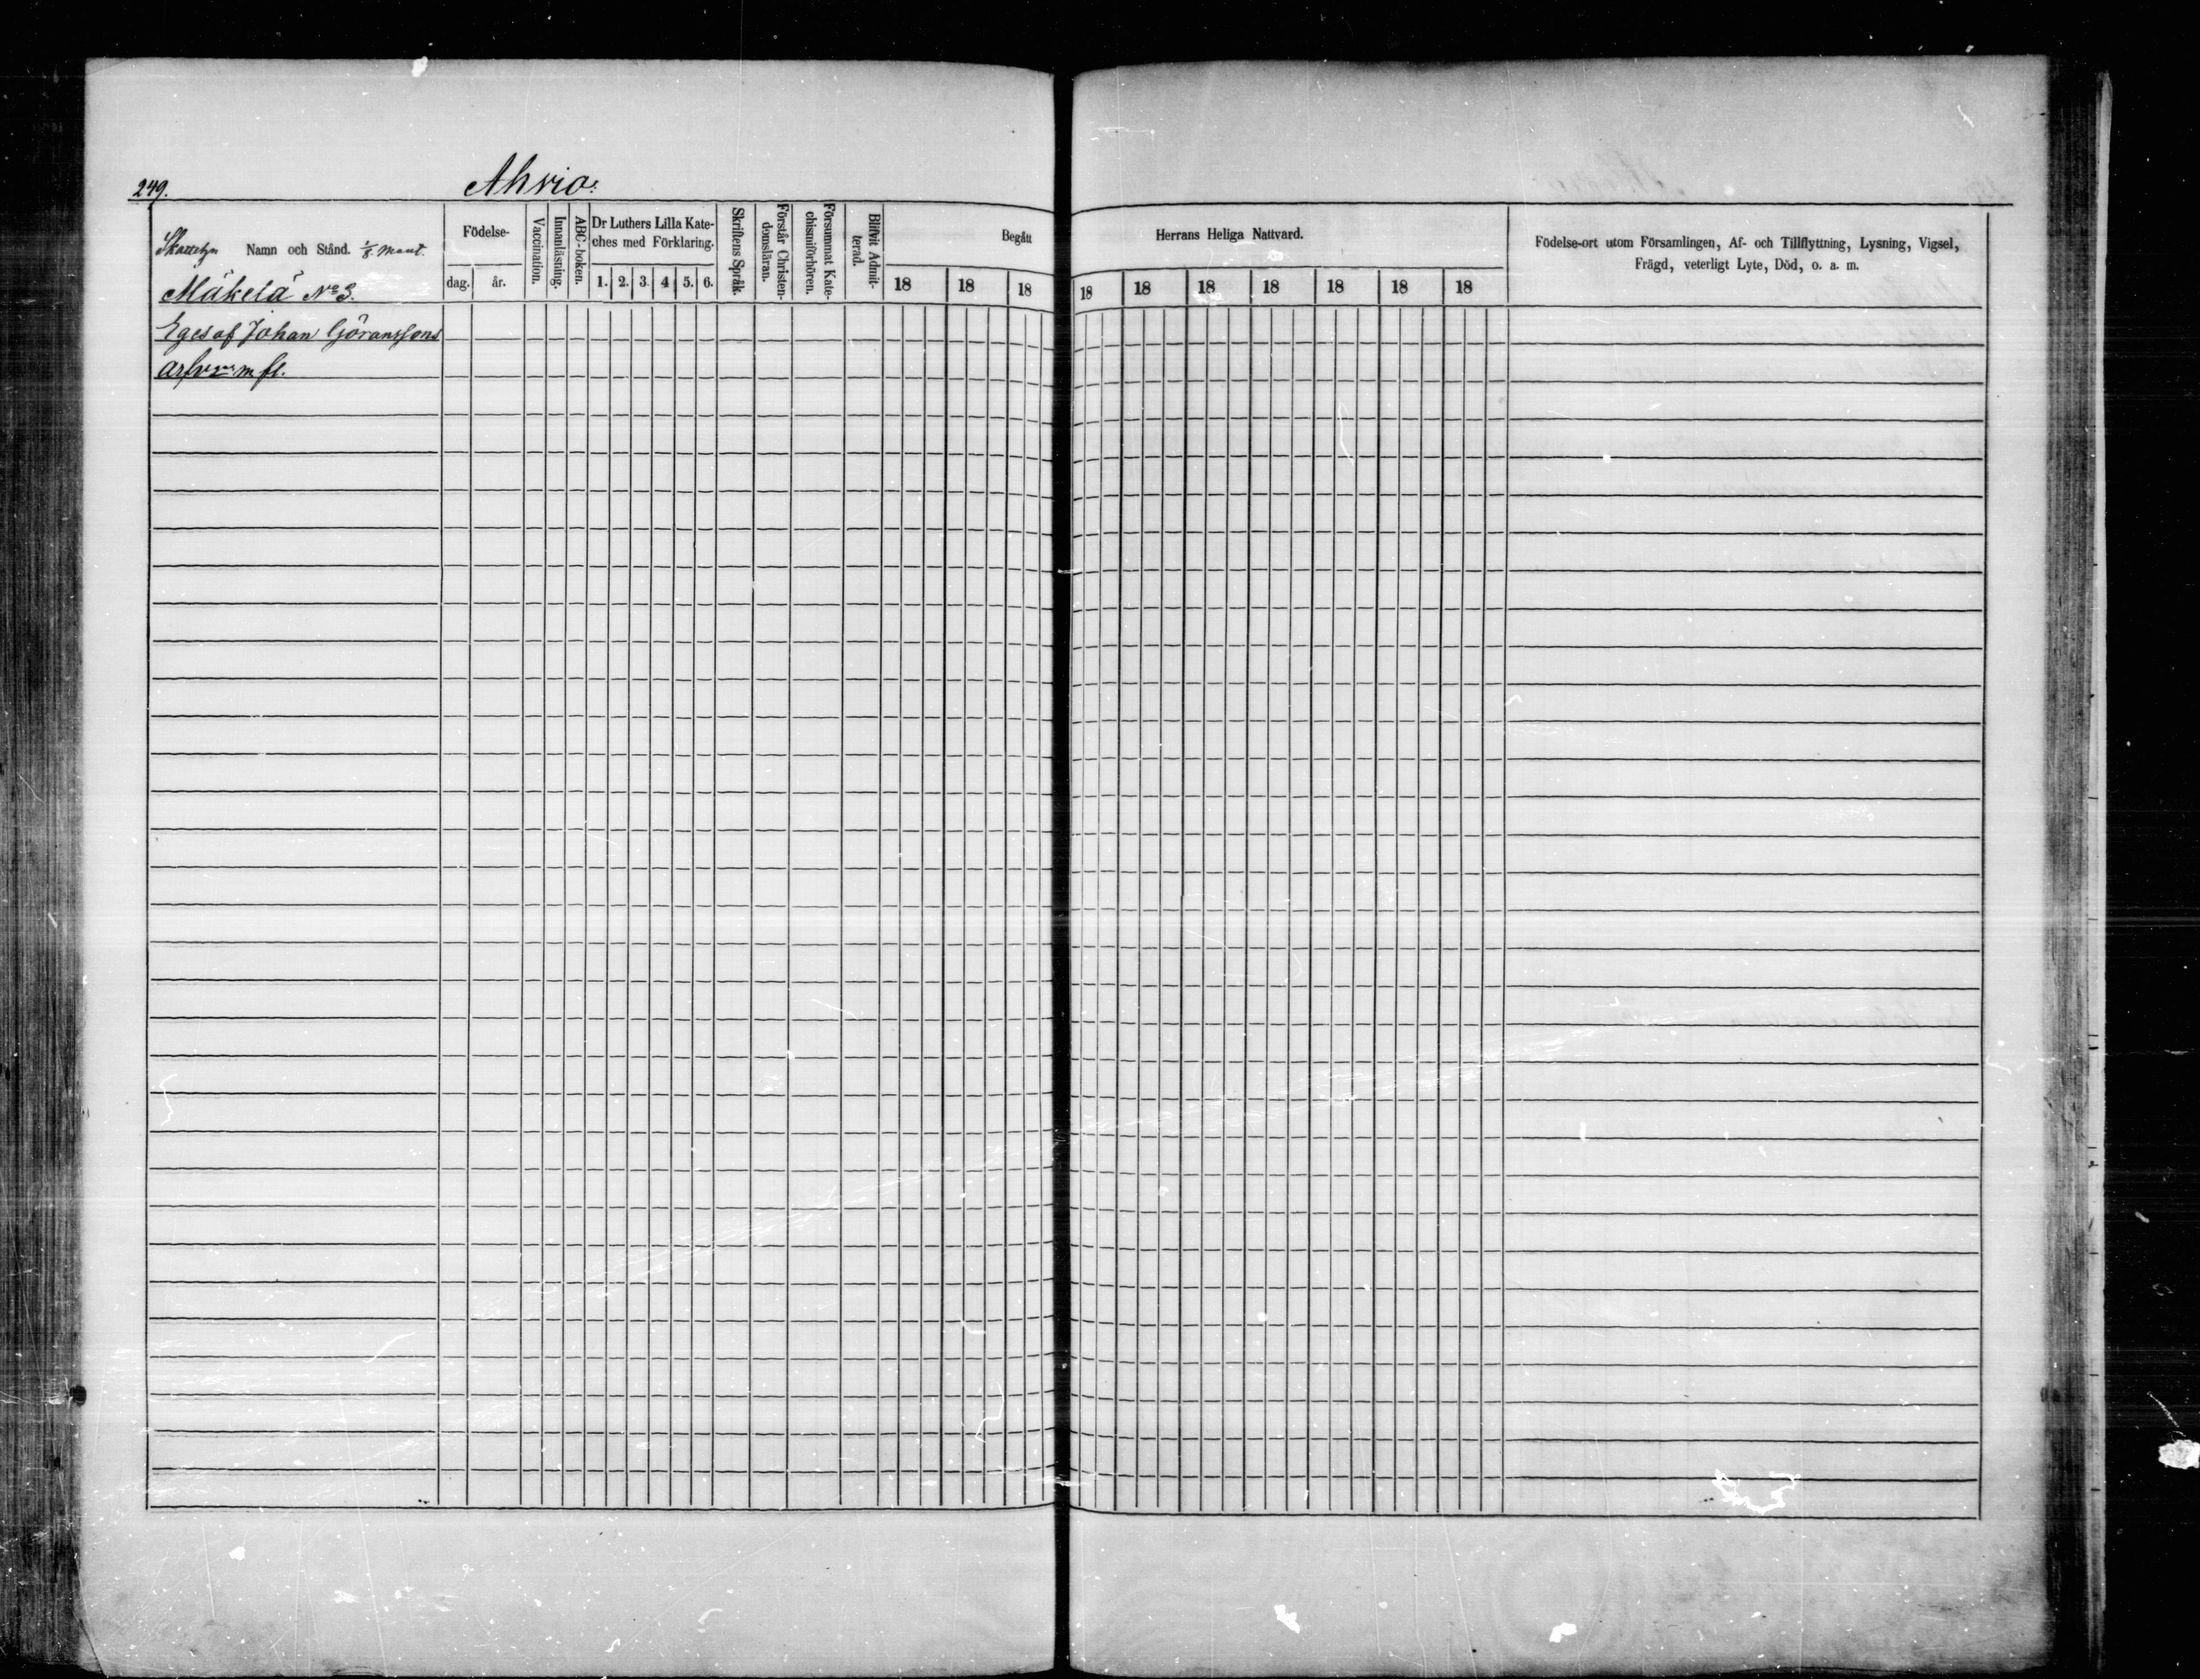 249. Ahvio:
Namn och Stånd. 1/8 Mant.
Mäkelä No 3.
Eges af Johan Göranssons
m fl.
Födelse-
dag. år.
Vaccination.
Innanläsning.
ABC-boken.
Dr Luthers Lilla Kate-
ches med Förklaring.
1. 2. 3. 4 5. 6.
Skriftens Språk.
Förstår Christen-
domsläran.
Försummat Kate-
chismiförhören.
Blifvit Admit-
terad.
Begått
18 18 18
Herrans Heliga Nattvard.
18 18 18 18 18 18 18
Födelse-ort utom Församlingen, Af- och Tillflyttning, Lysning, Vigsel,
Frägd, veterligt Lyte, Död, o. a. m.